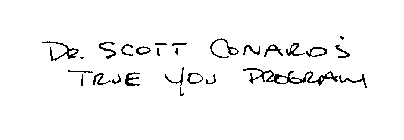 DR. SCOTT CONARD'S
TRUE YOU PROGRAM